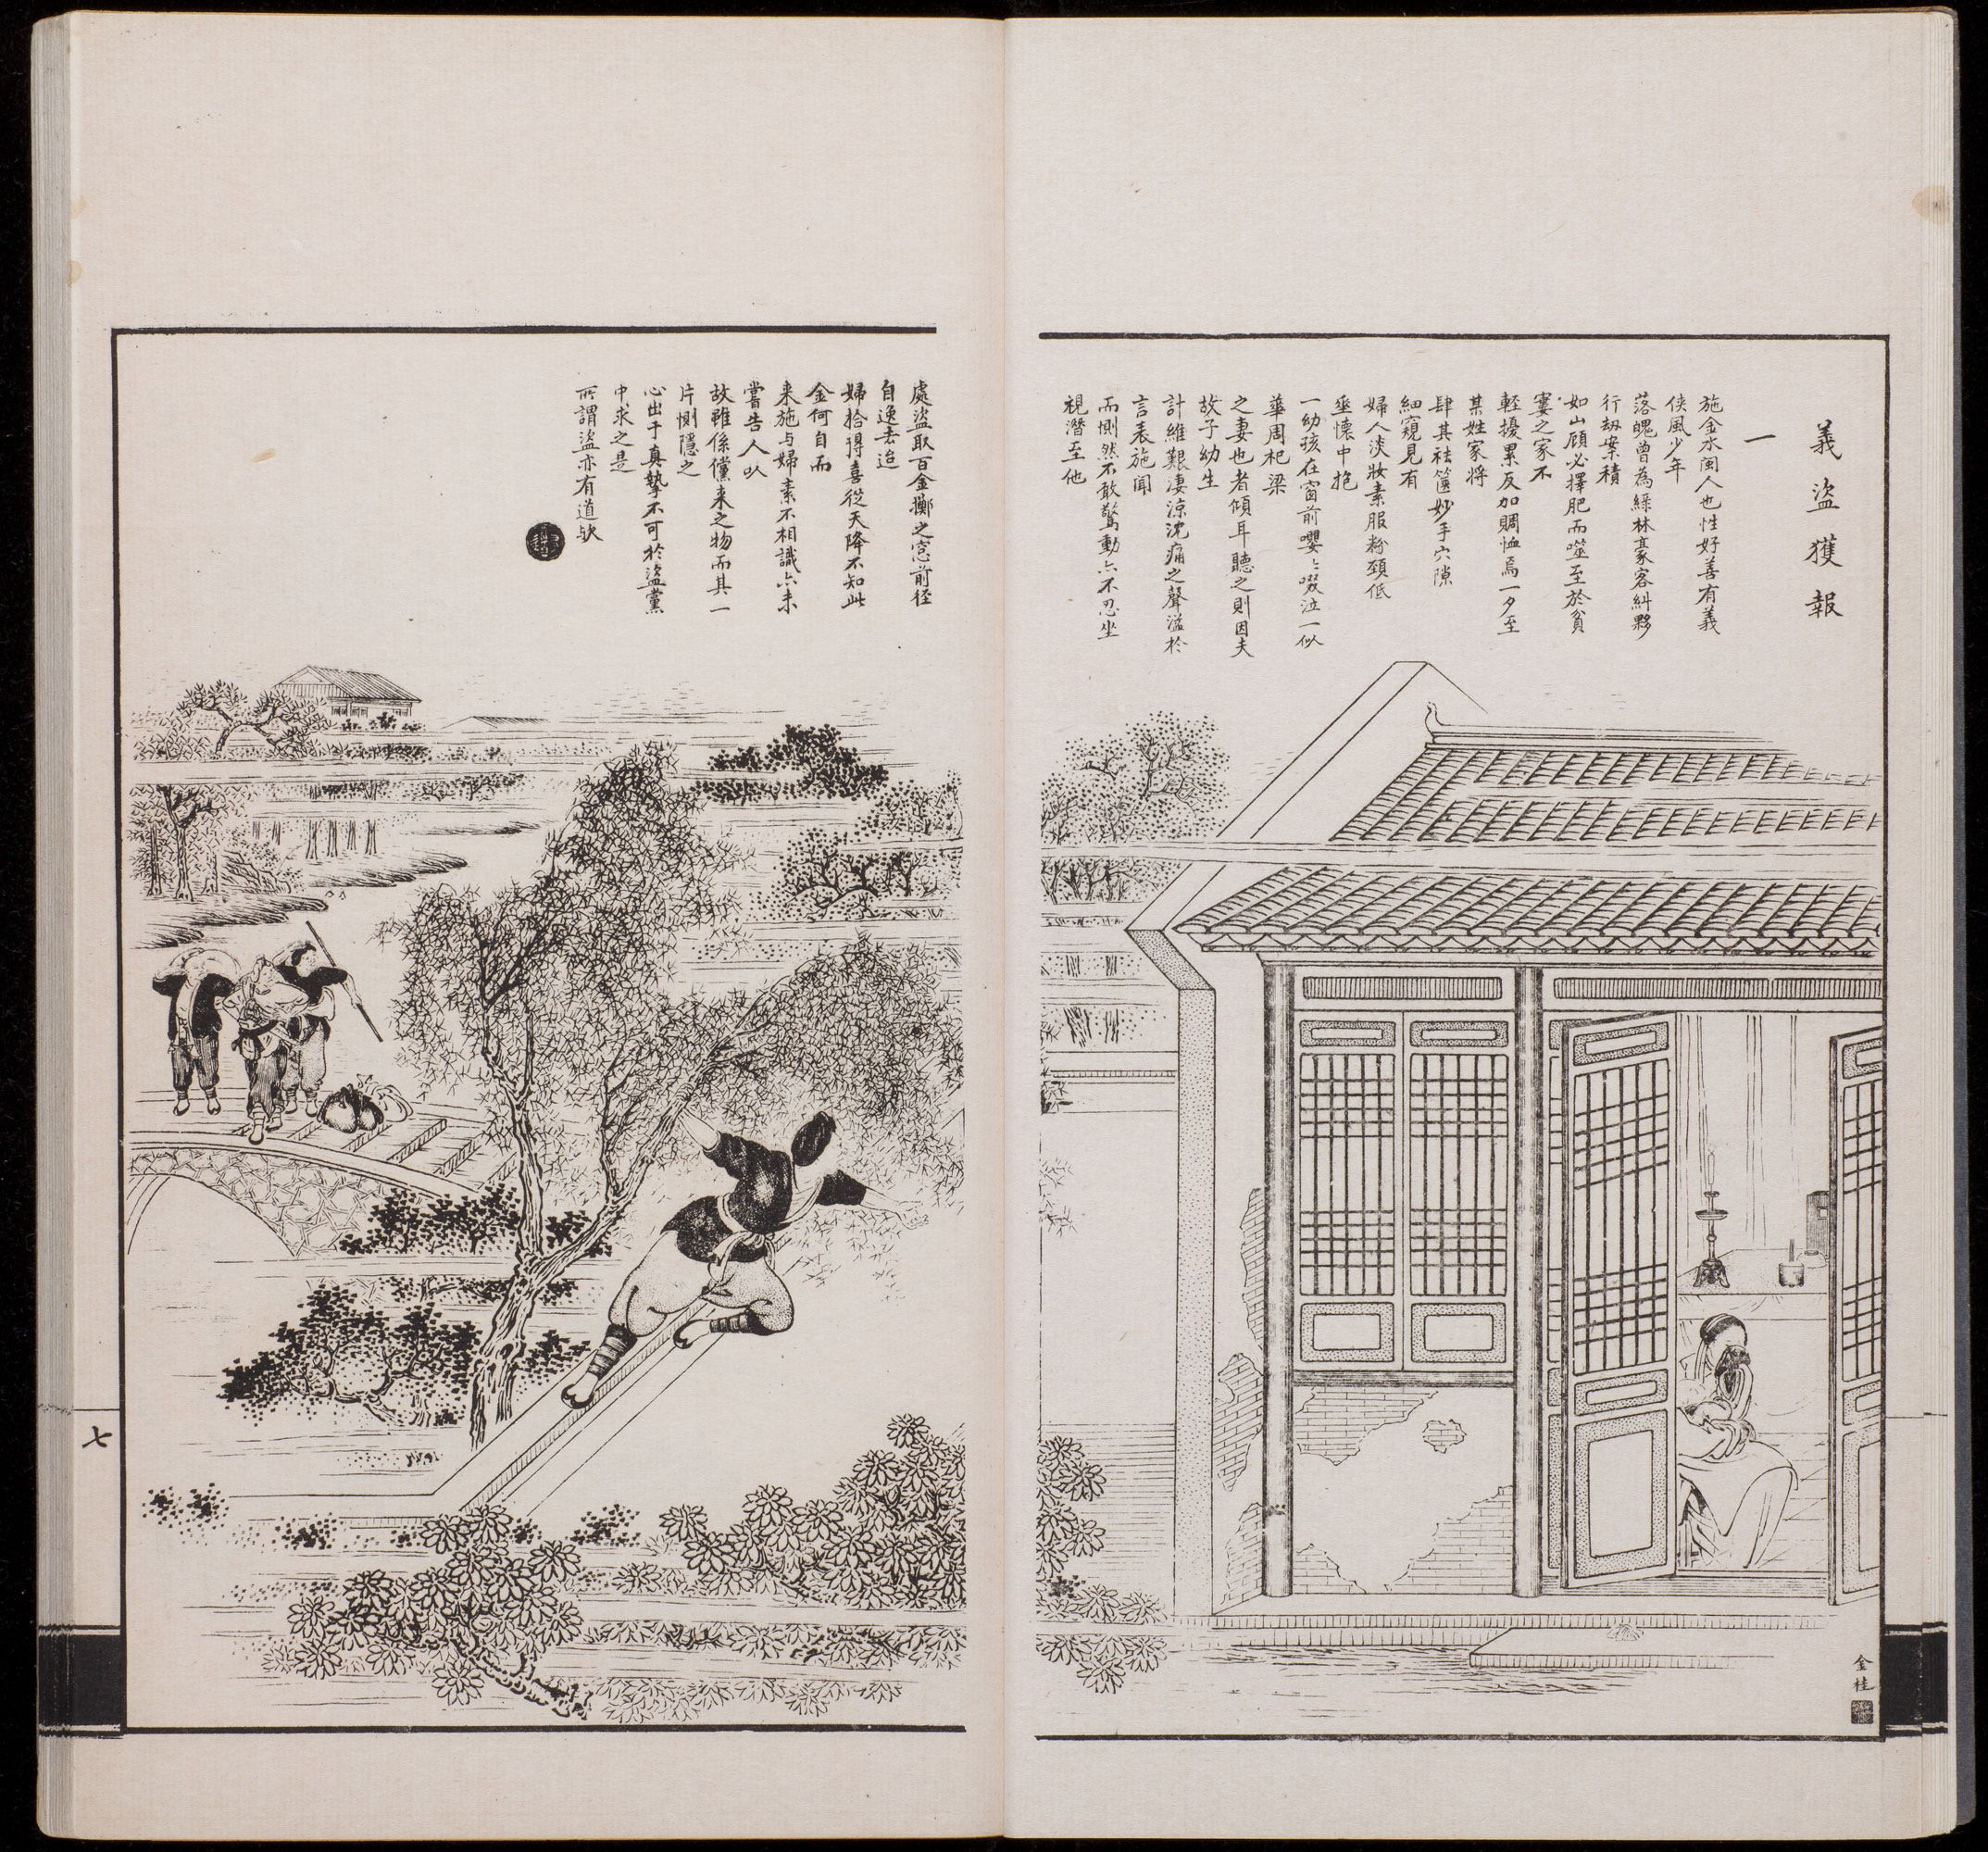 義盜獲報
一
施金水閩人也性好善有義
俠風少年
落魄曾為綠林豪客糾夥
行劫案積
如山顧必擇肥而噬至於貧
窶之家不
輕擾累反加賙恤焉一夕至
某姓家將
肆其祛篋妙手穴隙
細窺見有
婦人淡妝素服粉頸低
垂懷中抱
一幼孩在窗前嚶〻啜泣一似
華周杞梁
之妻也者傾耳聽之則因夫
故子幼生
計維艱凄凉沈痛之聲溢於
言表施聞
而惻然不敢驚動亦不忍坐
視潛至他
處盜取百金擲之窓前徑
自逸去迨
婦拾得喜從天降不知此
金何自而
来施与婦素不相識亦未
嘗告人以
故雖係儻来之物而其一
片惻隱之
心出于真摯不可於盜黨
中求之是
所謂盜亦有道欤
七
金桂